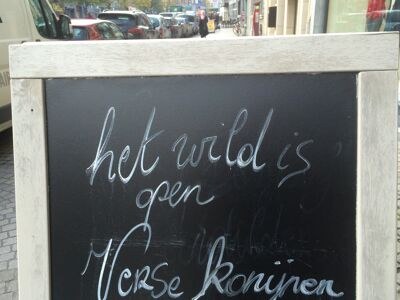 het wild is
open
Verse konijnen